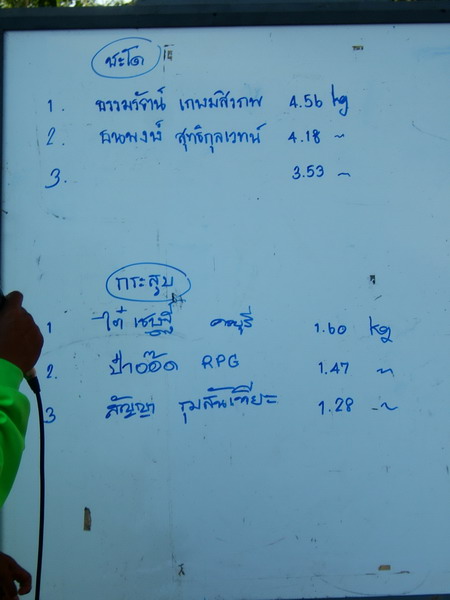 ชะโด
1. ธรรมรัตน์ เกษมสิรภพ 4.56 kg
2. ธนพงษ์ สุทธิกุลเวทน์ 4.18 ~
3. 3.53 ~
กระสูบ
1 ไต๋ เชษฐ์ ชลบุรี 1.60 kg
2. ป๋าอ๊อด RPG 1.47 ~
3 สัญญา 1.28 ~